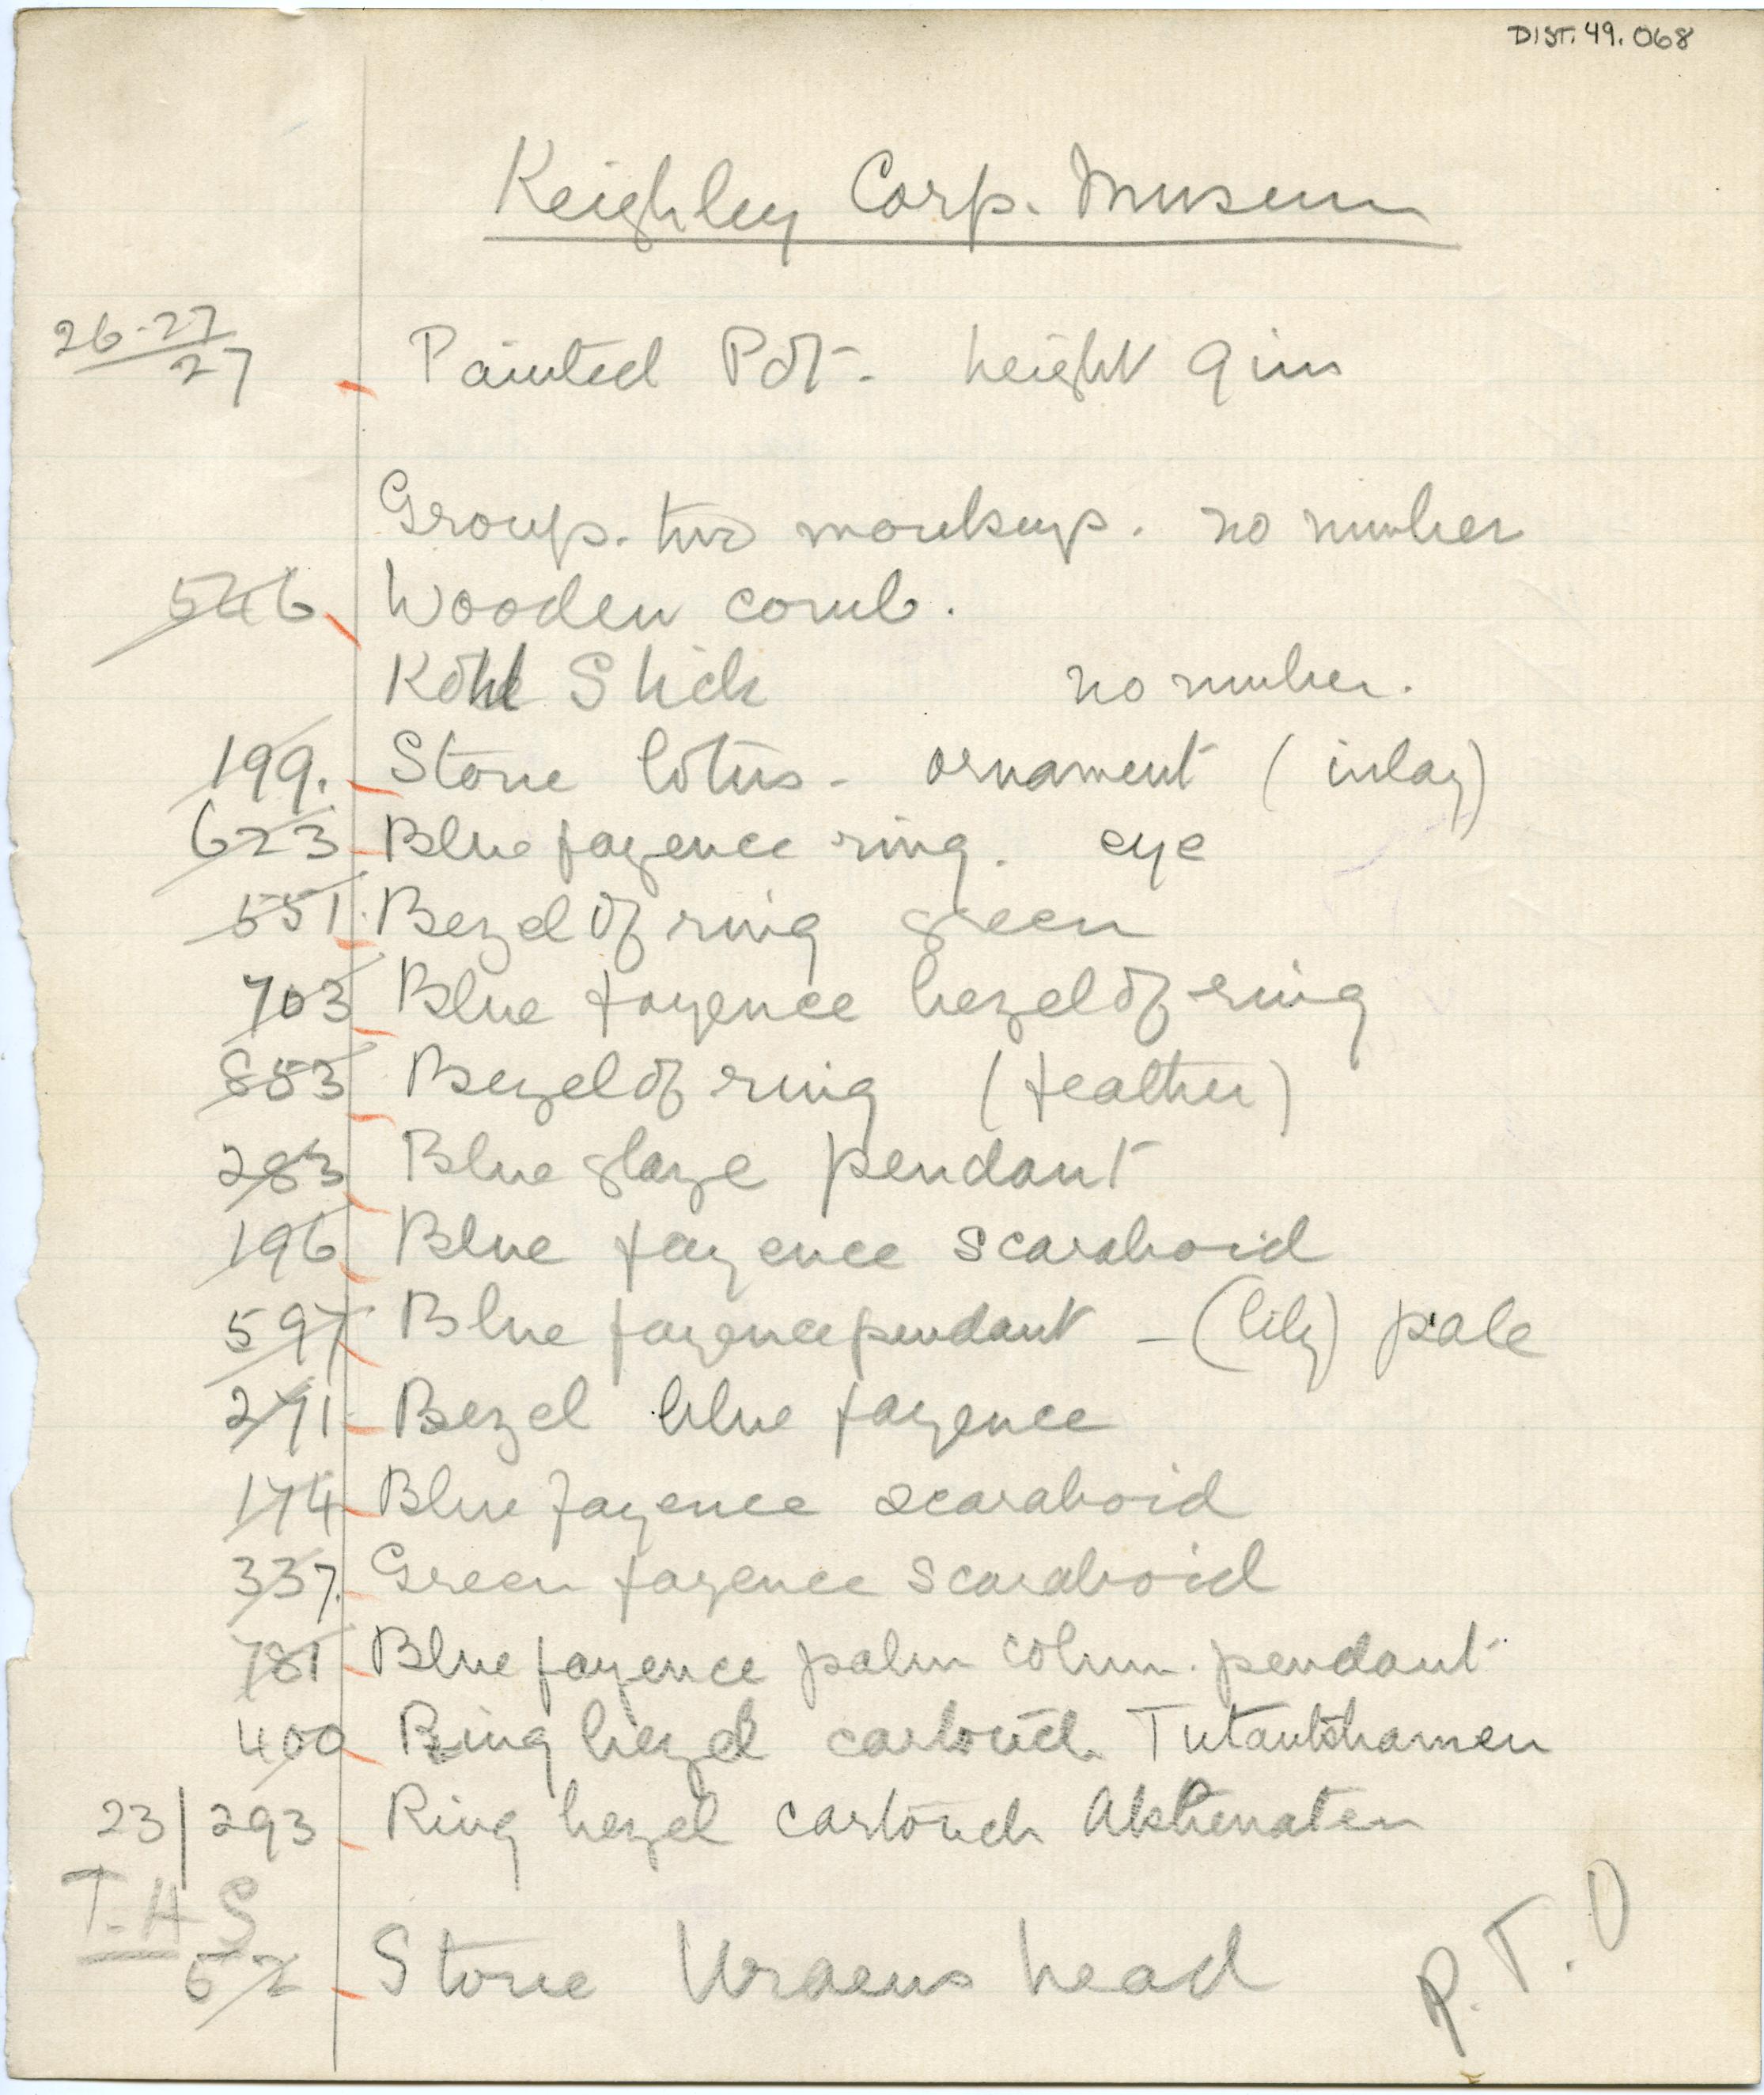 DIST. 49.068
Keighley Corp. Museum
26-27
27 Painted Pot - height 9 ins
Group. two monkeys. no number
546 Wooden comb.
Kohl Stick no number.
199. Stone lotus - ornament (inlay)
623 Blue fayence ring. eye
551. Bezel of ring green
703 Blue fayence bezel of ring
853 Bezel of ring (feather)
283 Blue glaze pendant
196 Blue fayence scaraboid
597 Blue fayence pendant - (lily) pale
271 Bezel blue fayence
174 Blue fayence scaraboid
337. Green fayence scaraboid
781 Blue fayence palm colum. pendant
400 Ring bezel cartouch Tutankhamen
23/293 Ring bezel cartouch Akhenaten
T.H S
52 Stone Uraeus head
P.T.O